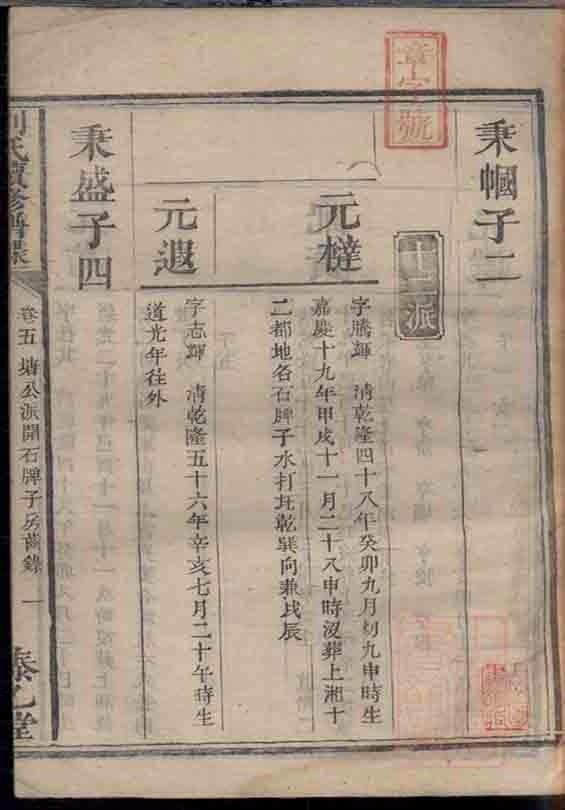 章字號
秉幗子二
十二派
元檖
字騰輝 清乾隆四十八年癸卯九月初九申時生
嘉慶十九年甲戌十一月二十八申時沒葬上湘十
二都地名石牌子水打坵乾巽向兼戌辰
元遐
字志輝 清乾隆五十六年辛亥七月二十午時生
道光年往外
秉盛子四
劉氏續修譜
卷五 塘公派開石牌子房齒錄 一
堂